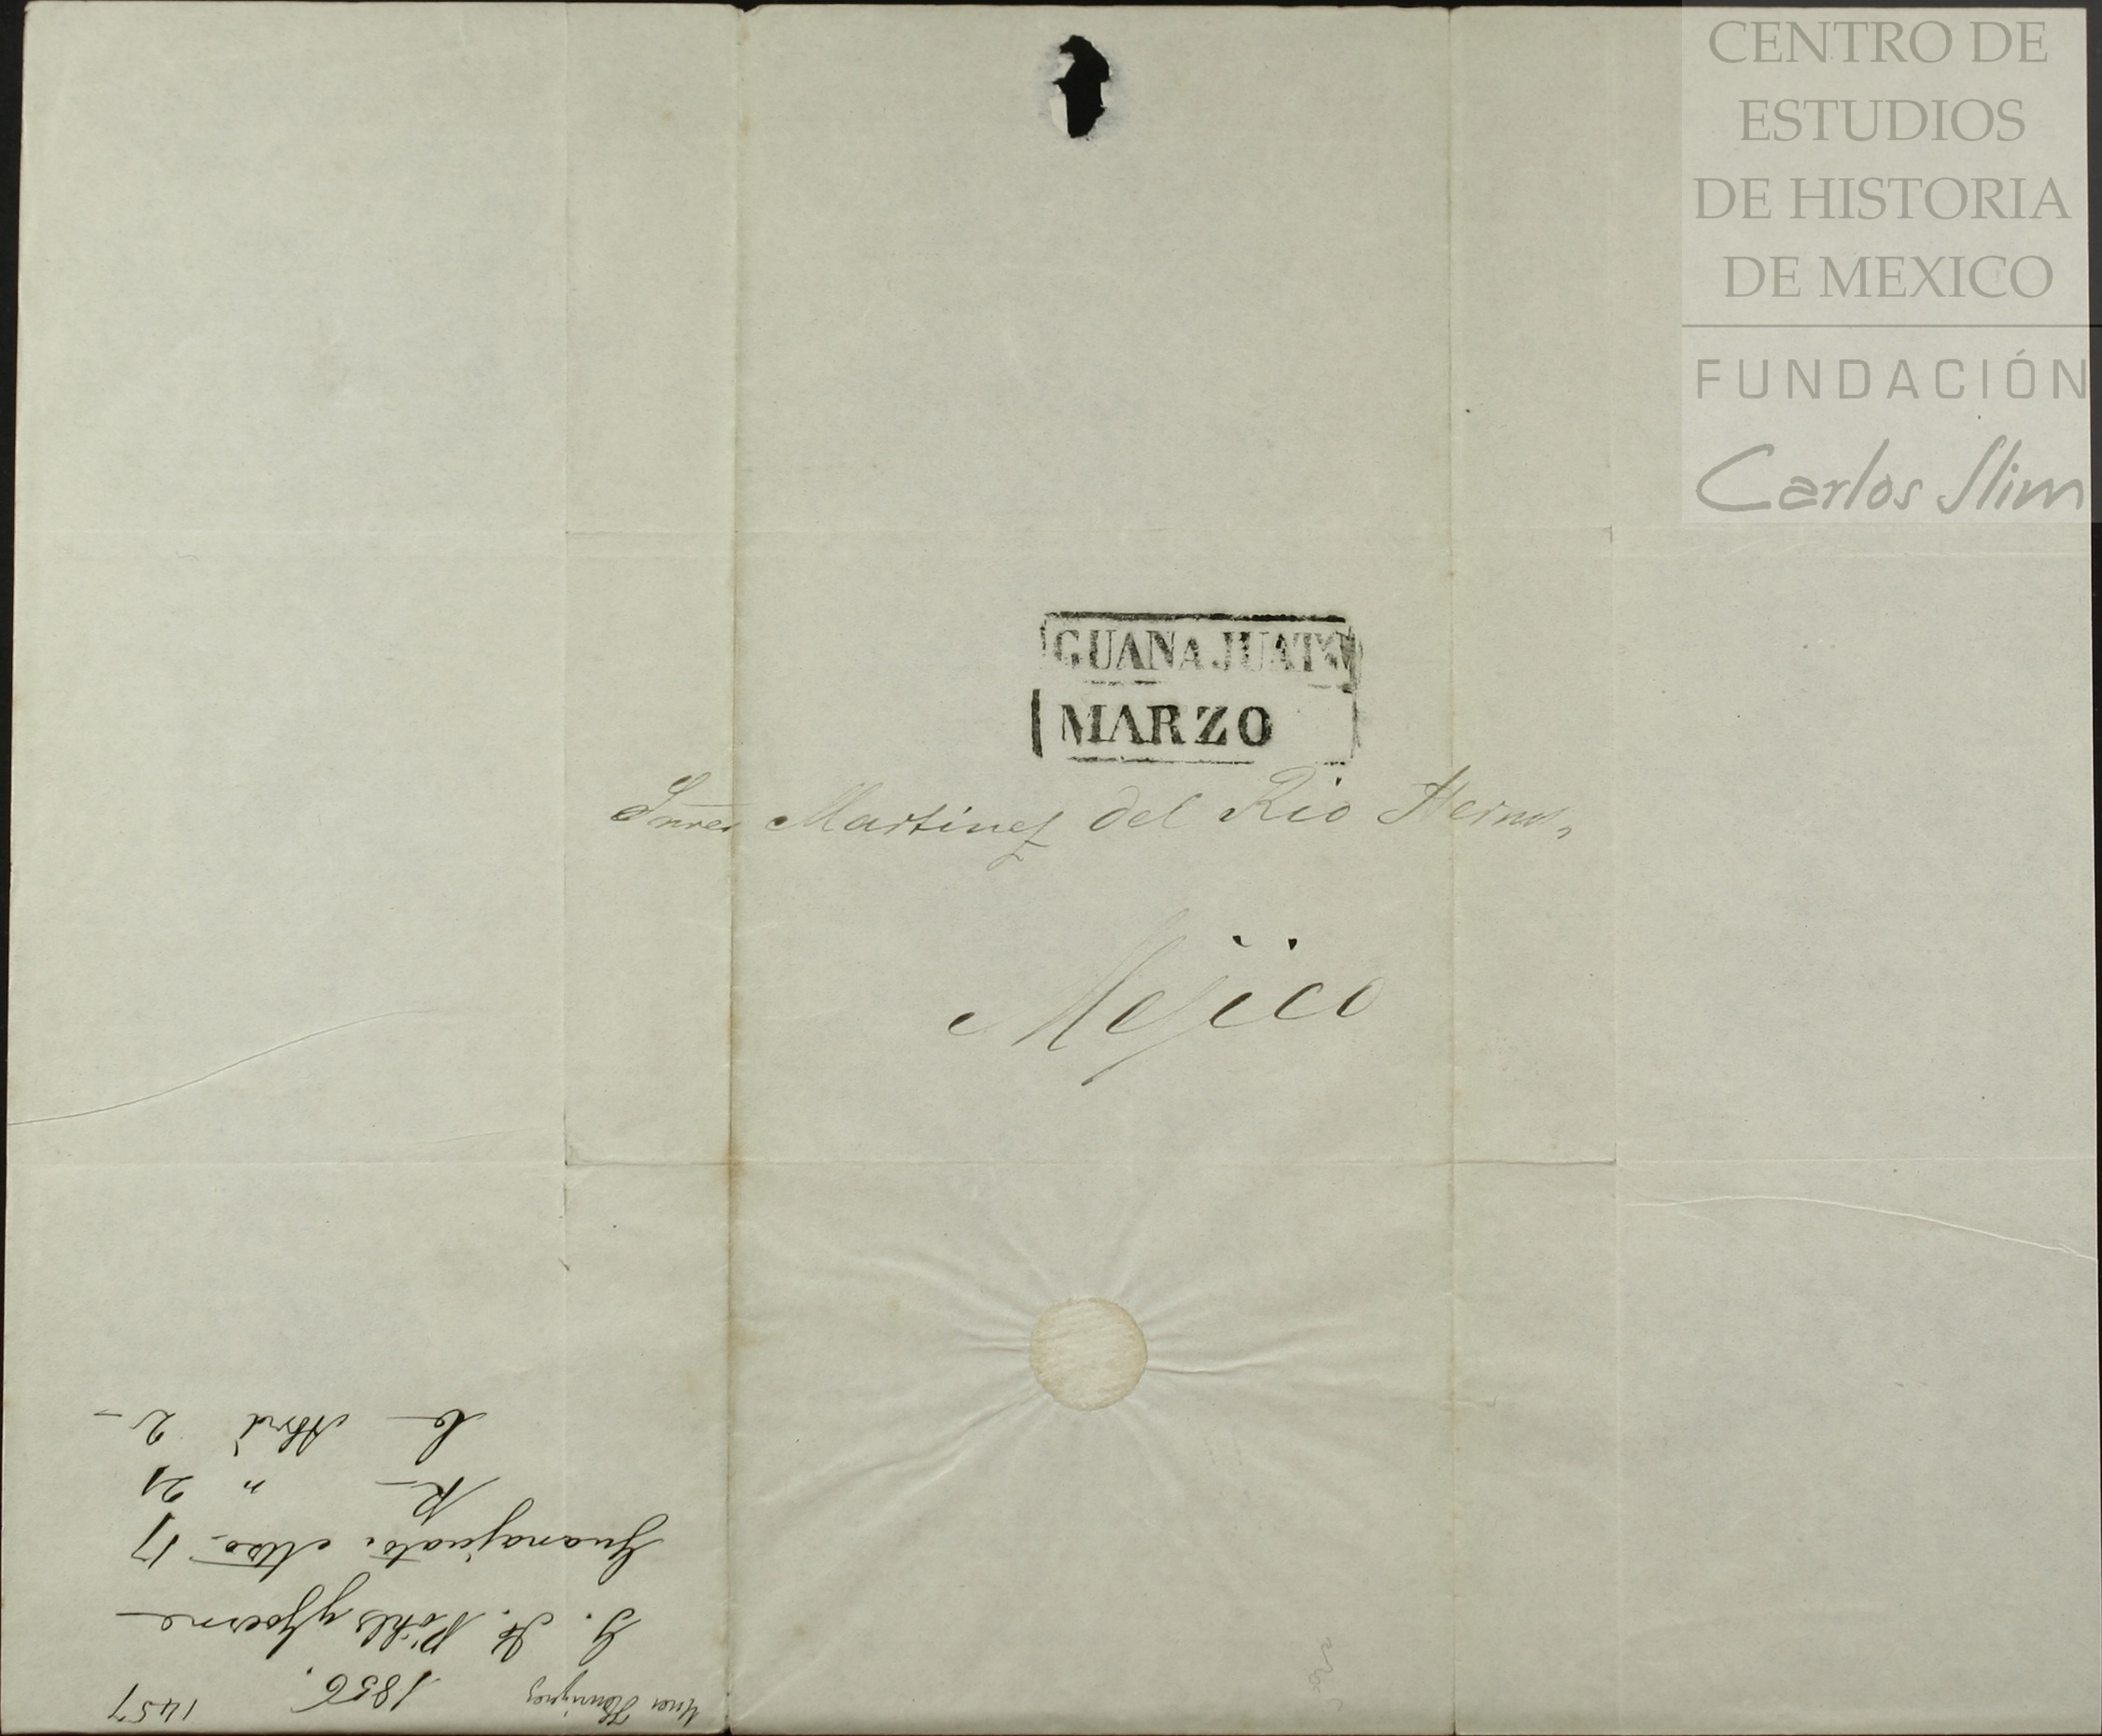 CENTRO DE
ESTUDIOS
DE HISTORIA
DE MEXICO
FUNDACIÓN
Carlos Slim
GUANAJUATO
MARZO
Sñres Martinez del Rio Herms,
Mejico
1856. 1457
Guanajuato Mzo 17
R— " 21
C— Abril 2—